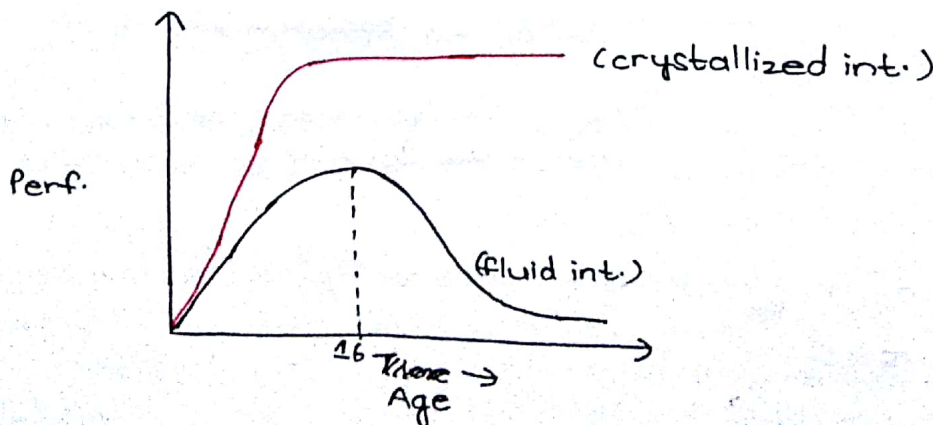 (crystallized int.)
Perf.
(fluid int.)
16 →
Age